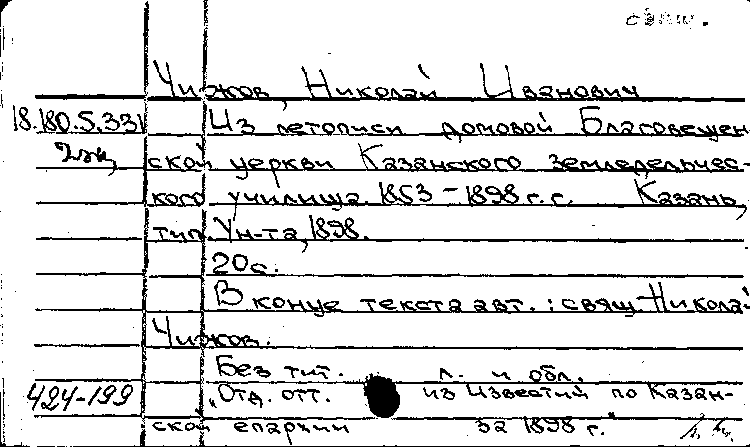 свящ.
Чижов, Николай Иванович
18.180.5.331 Из летописи домовой Благовещен
2 экз ской церкви Казанского земледельчес-
кого училища 1853-1898 г.г. Казань,
тип. Ун-та, 1898.
20 с.
В конце текста авт.: свящ. Николай
Чижов.
Без тит. л. и обл.
424-199 "Отд. отт. из Известий по Казан-
ской епархии за 1898 г."